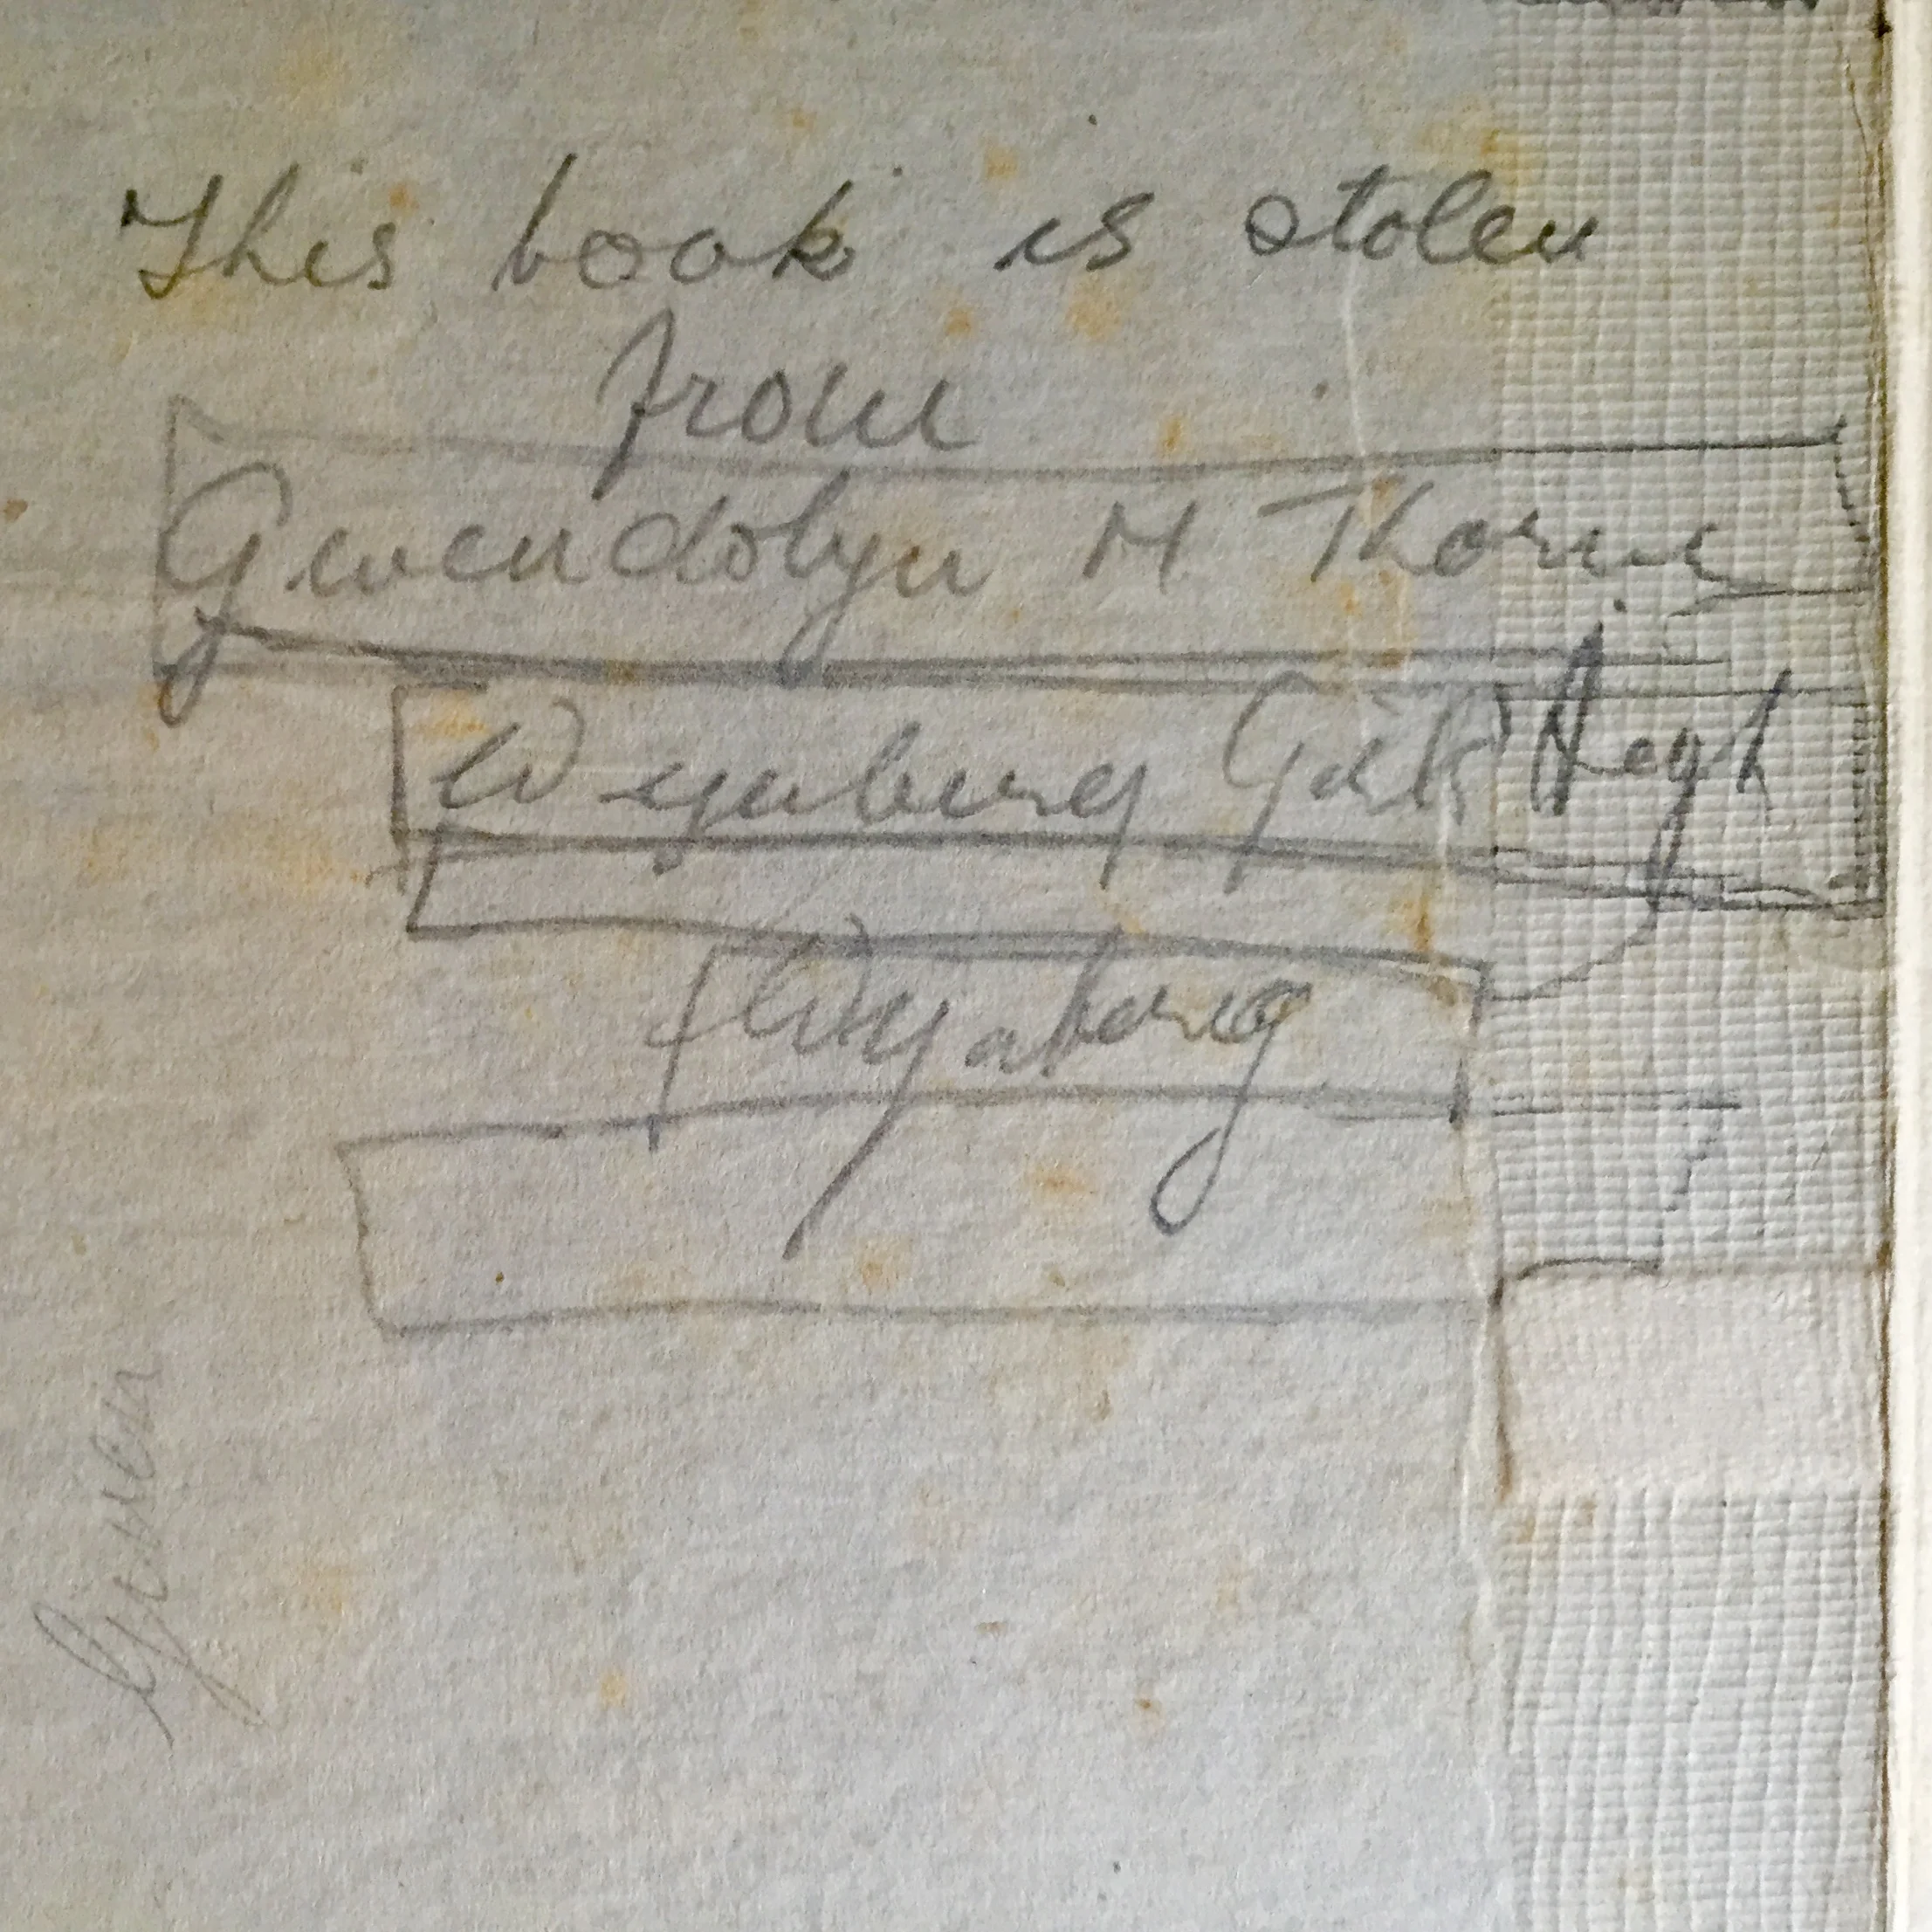 This book is stolen
from
Gwendolyn M Thorne
Wynberg Girls' High
Wynberg
Gwen